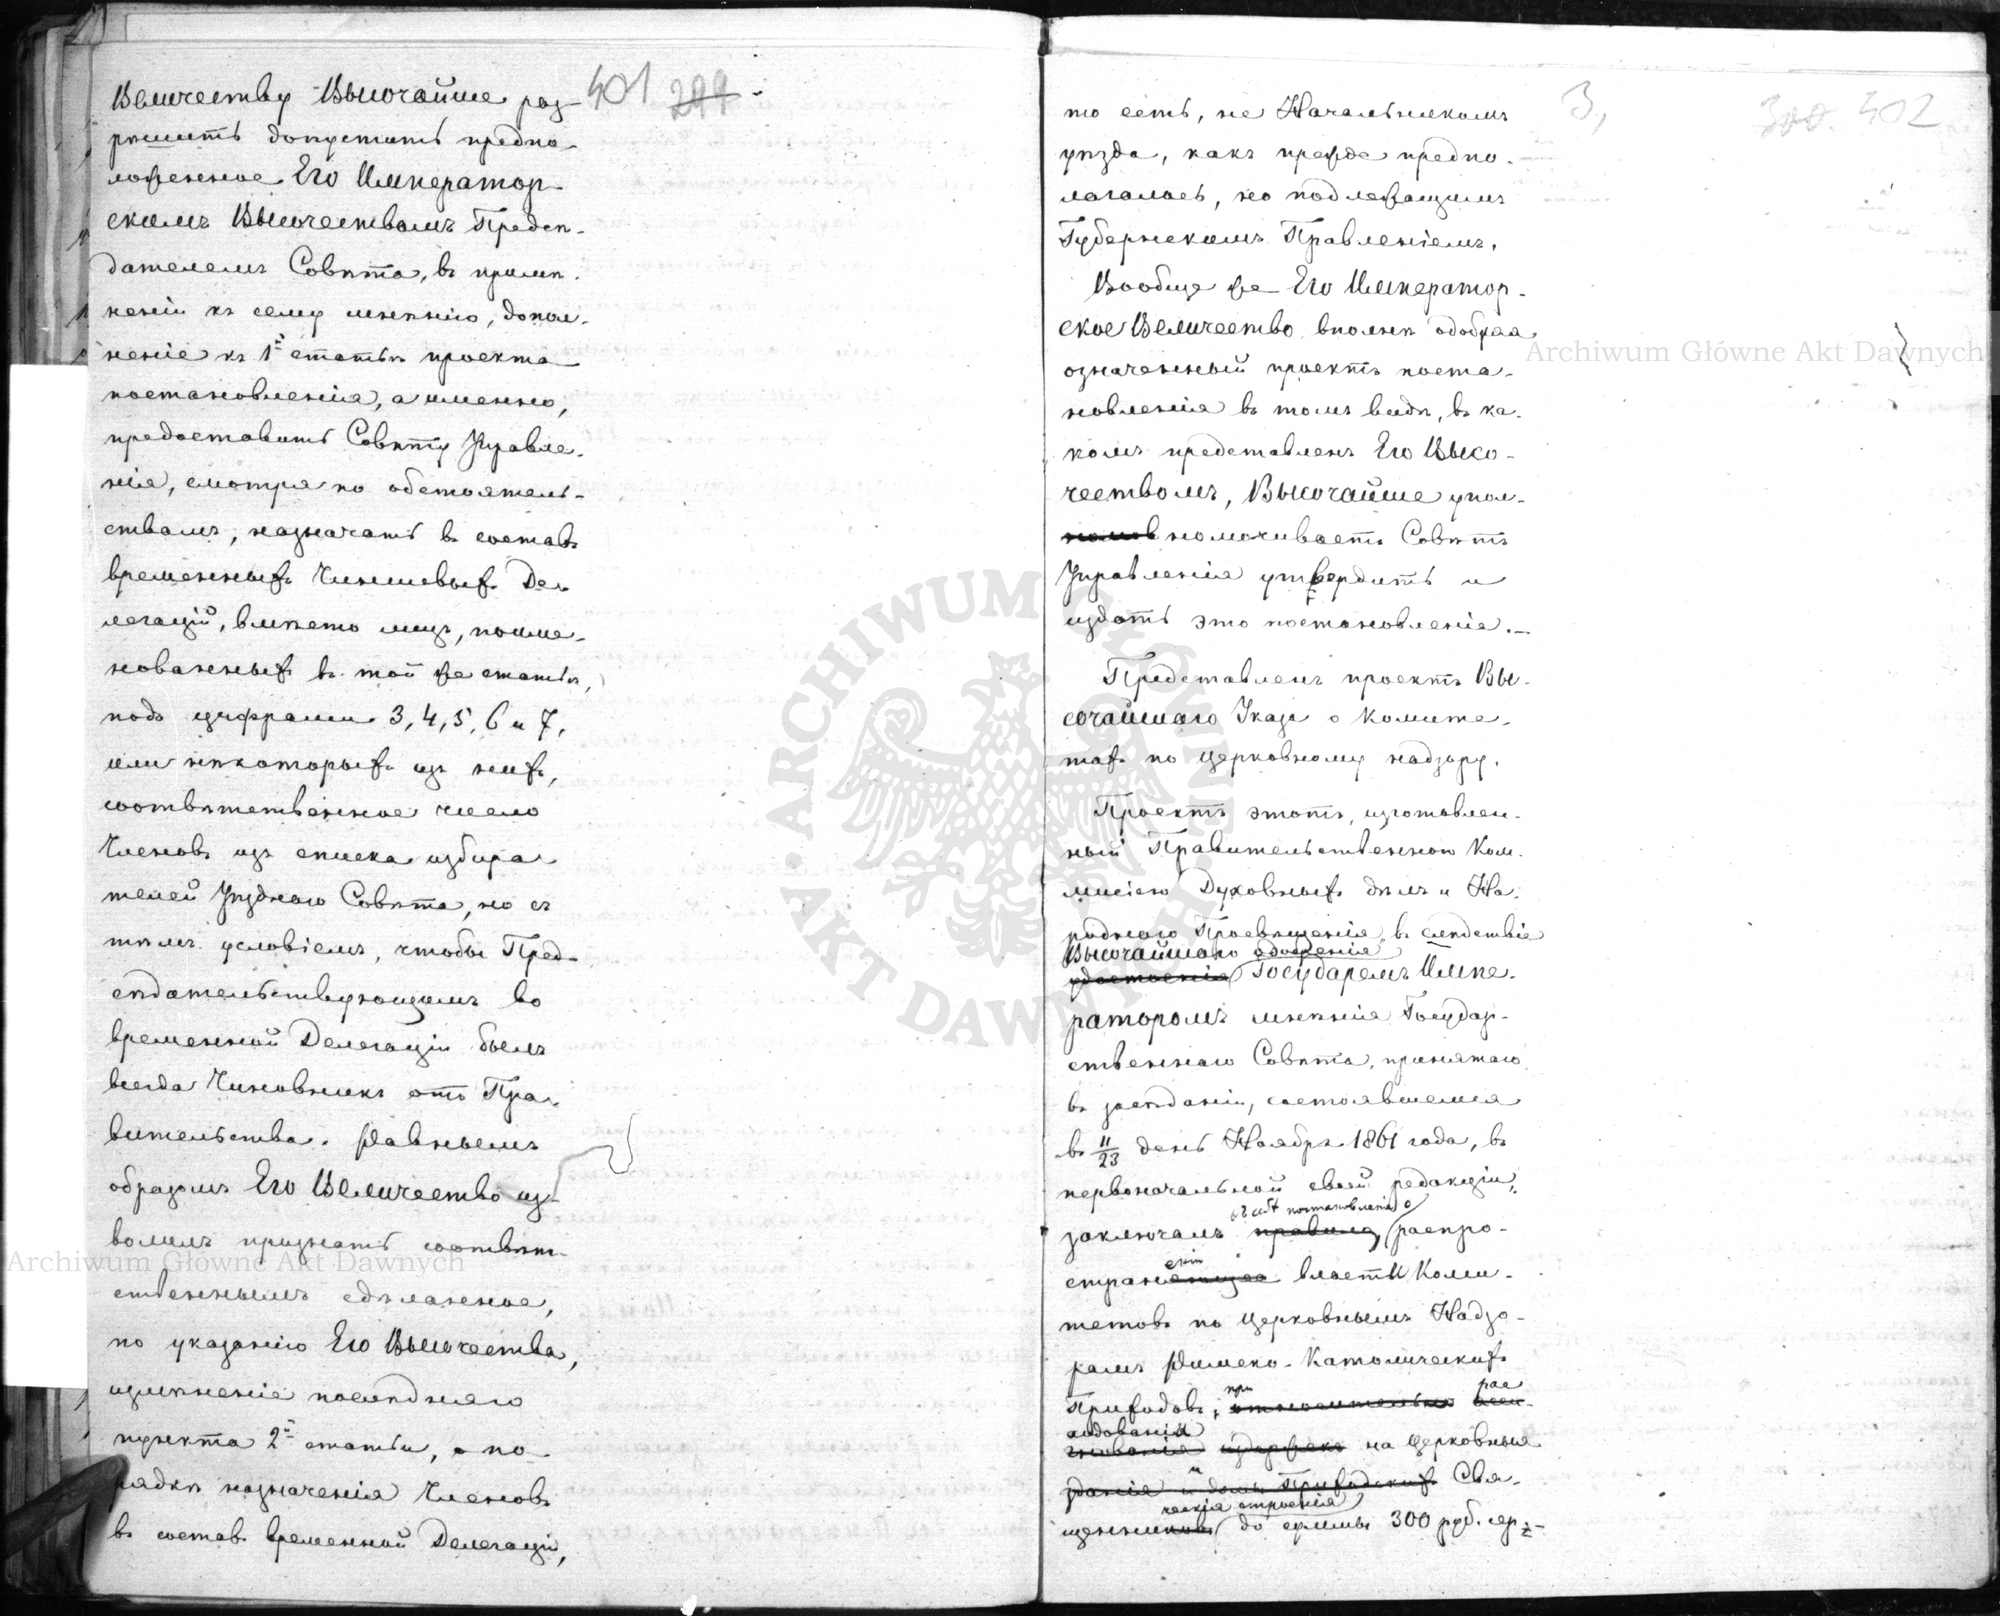 401 299
Величеству Высочайше раз-
рѣшить допустить предпо-
ложенное Его Император-
скимъ Высочествомъ Предсѣ-
дателемъ Совѣта, въ примѣ-
неніи къ сему мнѣнію, допол-
неніе къ 1й статьѣ проекта
постановленія, а именно,
предоставить Совѣту Управле-
нія, смотря по обстоятель-
ствамъ, назначать въ составъ
временныхъ Чиншевыхъ Де-
легацій, вмѣсто лицъ, поиме-
нованныхъ въ той же статьѣ,
подъ цифрами 3, 4, 5, 6 и 7,
или нѣкоторыхъ изъ нихъ,
соотвѣтственное число
Членовъ изъ списка избира-
телей Уѣзднаго Совѣта, но съ
тѣмъ условіемъ, чтобы Пред-
сѣдательствующимъ во
временной Делегаціи былъ
всегда Чиновникъ отъ Пра-
вительства. Равнымъ
образомъ Его Величество из-
волилъ признать соотвѣт-
ственнымъ сдѣланное,
по указанію Его Высочества,
измѣненіе послѣдняго
пункта 2й статьи, о по-
рядкѣ назначенія Членовъ
въ составъ временной Делегаціи,
3, 300. 402
то есть, не Начальникомъ
уѣзда, какъ прежде предпо-
лагалось, но подлежащимъ
Губернскимъ Правленіемъ.
Вообще же Его Император-
ское Величество вполнѣ одобряя
означенный проектъ поста-
новленія въ томъ видѣ, въ ка-
комъ представленъ Его Высо-
чествомъ, Высочайше упол-
номочиваетъ Совѣтъ
Управленія утвердить и
издать это постановленіе.—
Представленъ проектъ Вы-
сочайшаго Указа о Комите-
тахъ по церковному надзору.
Проектъ этотъ, изготовлен-
ный Правительственною Ком-
мисіею Духовныхъ дѣлъ и На-
роднаго Просвѣщенія, въ слѣдствіе
Высочайшаго одобренія
удостоенія Государемъ Импе-
раторомъ мнѣнія Государ-
ственнаго Совѣта, принятаго
въ засѣданіи, состоявшемся
въ 11/23 день Ноября 1861 года, въ
первоначальной своей редакціи,
въ себѣ постановленіе о
заключалъ правила распро-
страненія власти Коми-
тетовъ по церковнымъ Надзо-
рамъ Римско-Католическихъ
при рас
Приходовъ, относительно
ходованіи
издержекъ на церковныя
зданія и домы Приходскихъ Свя-
ческія строенія
щенниковъ до суммы 300 руб. сер.
Archiwum Główne Akt Dawnych
Archiwum Główne Akt Dawnych
ARCHIWUM GŁÓWNE AKT DAWNYCH